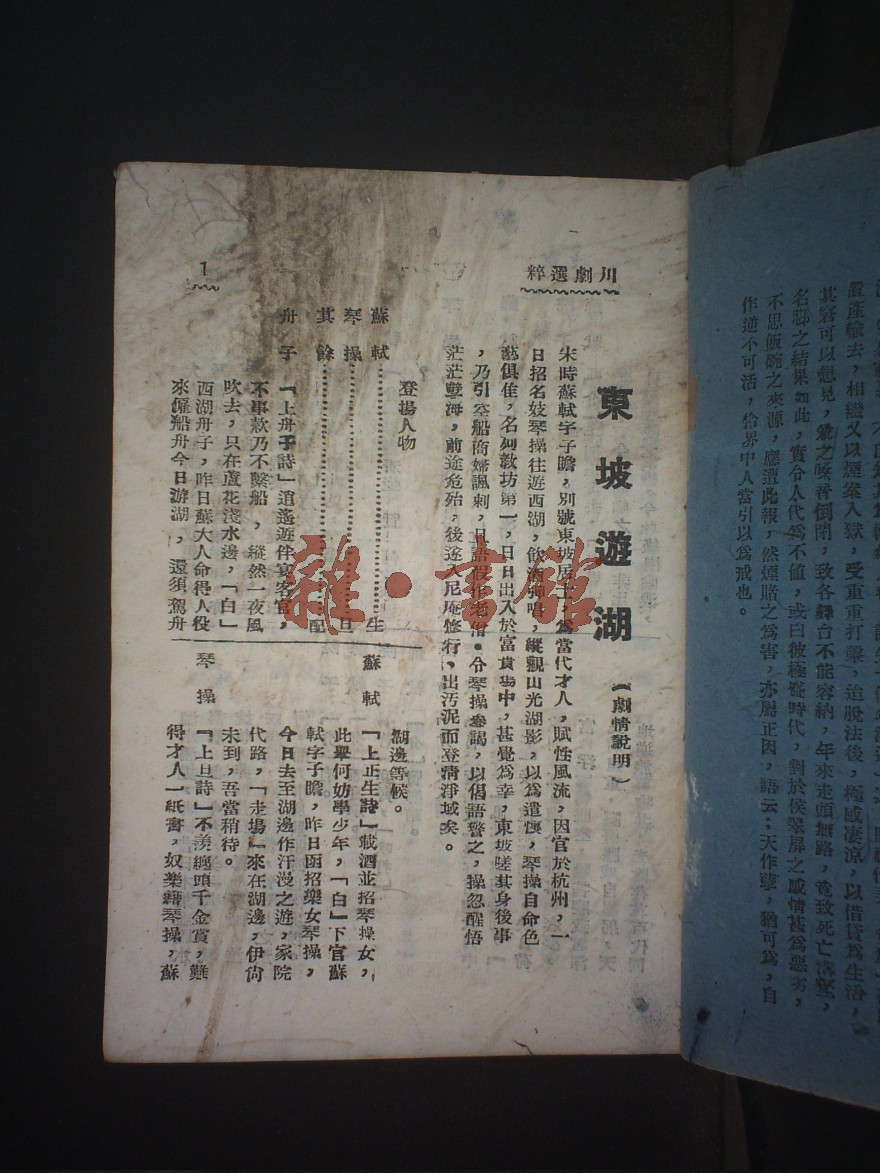 川劇選粹
1
東坡遊湖(劇情說明)
宋時蘇軾字子瞻,別號東坡居士,爲當代才人,賦性風流,因官於杭州,一
日招名妓琴操往遊西湖,飲酒,縱觀山光湖影,以爲遣懷,琴操自命色
藝俱佳,名列敎坊第一,日日出入於富貴塲中,甚覺爲幸,東坡嗟其身後事
,乃引空船商婦諷刺,且語假作老僧·令琴操參謁,以偈語警之,操忽醒悟
茫茫孽海,前途危殆,後遂入尼庵修行、出汚泥而登清淨域矣。
登場人物
蘇軾…………生
琴操…………旦
其餘…………配
舟子 「上舟子詩」逍遙遊伴宴客官,
不事款乃不繫船,縱然一夜風
吹去,只在蘆花淺水邊,「白」
西湖舟子,昨日蘇大人命得人役
來僱船舟今日游湖,還須駕舟
湖邊等候。
蘇軾 「上正生詩」載酒並招琴操女,
此舉何妨學少年,「白」下官蘇
軾字子瞻,昨日函招樂女琴操,
今日去至湖邊作汗漫之遊,家院
代路,「走場」來在湖邊,伊尙
未到,吾當稍待。
琴操 「上旦詩」不羨纏頭千金賞,難
得才人一紙書,奴樂籍琴操,蘇
置產輸去,相繼又以煙案入獄,受重重打擊,追脫法後,極感凄涼,以借貸爲生活,
其窘可以想見,致各舞台不能容納,年來走頭無路,竟致死亡溝壑,
名脚之結果如此,實令人代爲不值,或曰彼極盛時代,對於侯翠屛之感情甚爲惡劣,
不思飯碗之來源,應遭此報,然煙賭之爲害,亦屬正因,語云;天作孽,猶可爲,自
作逆不可活,伶界中人當引以爲戒也。
雜·書館